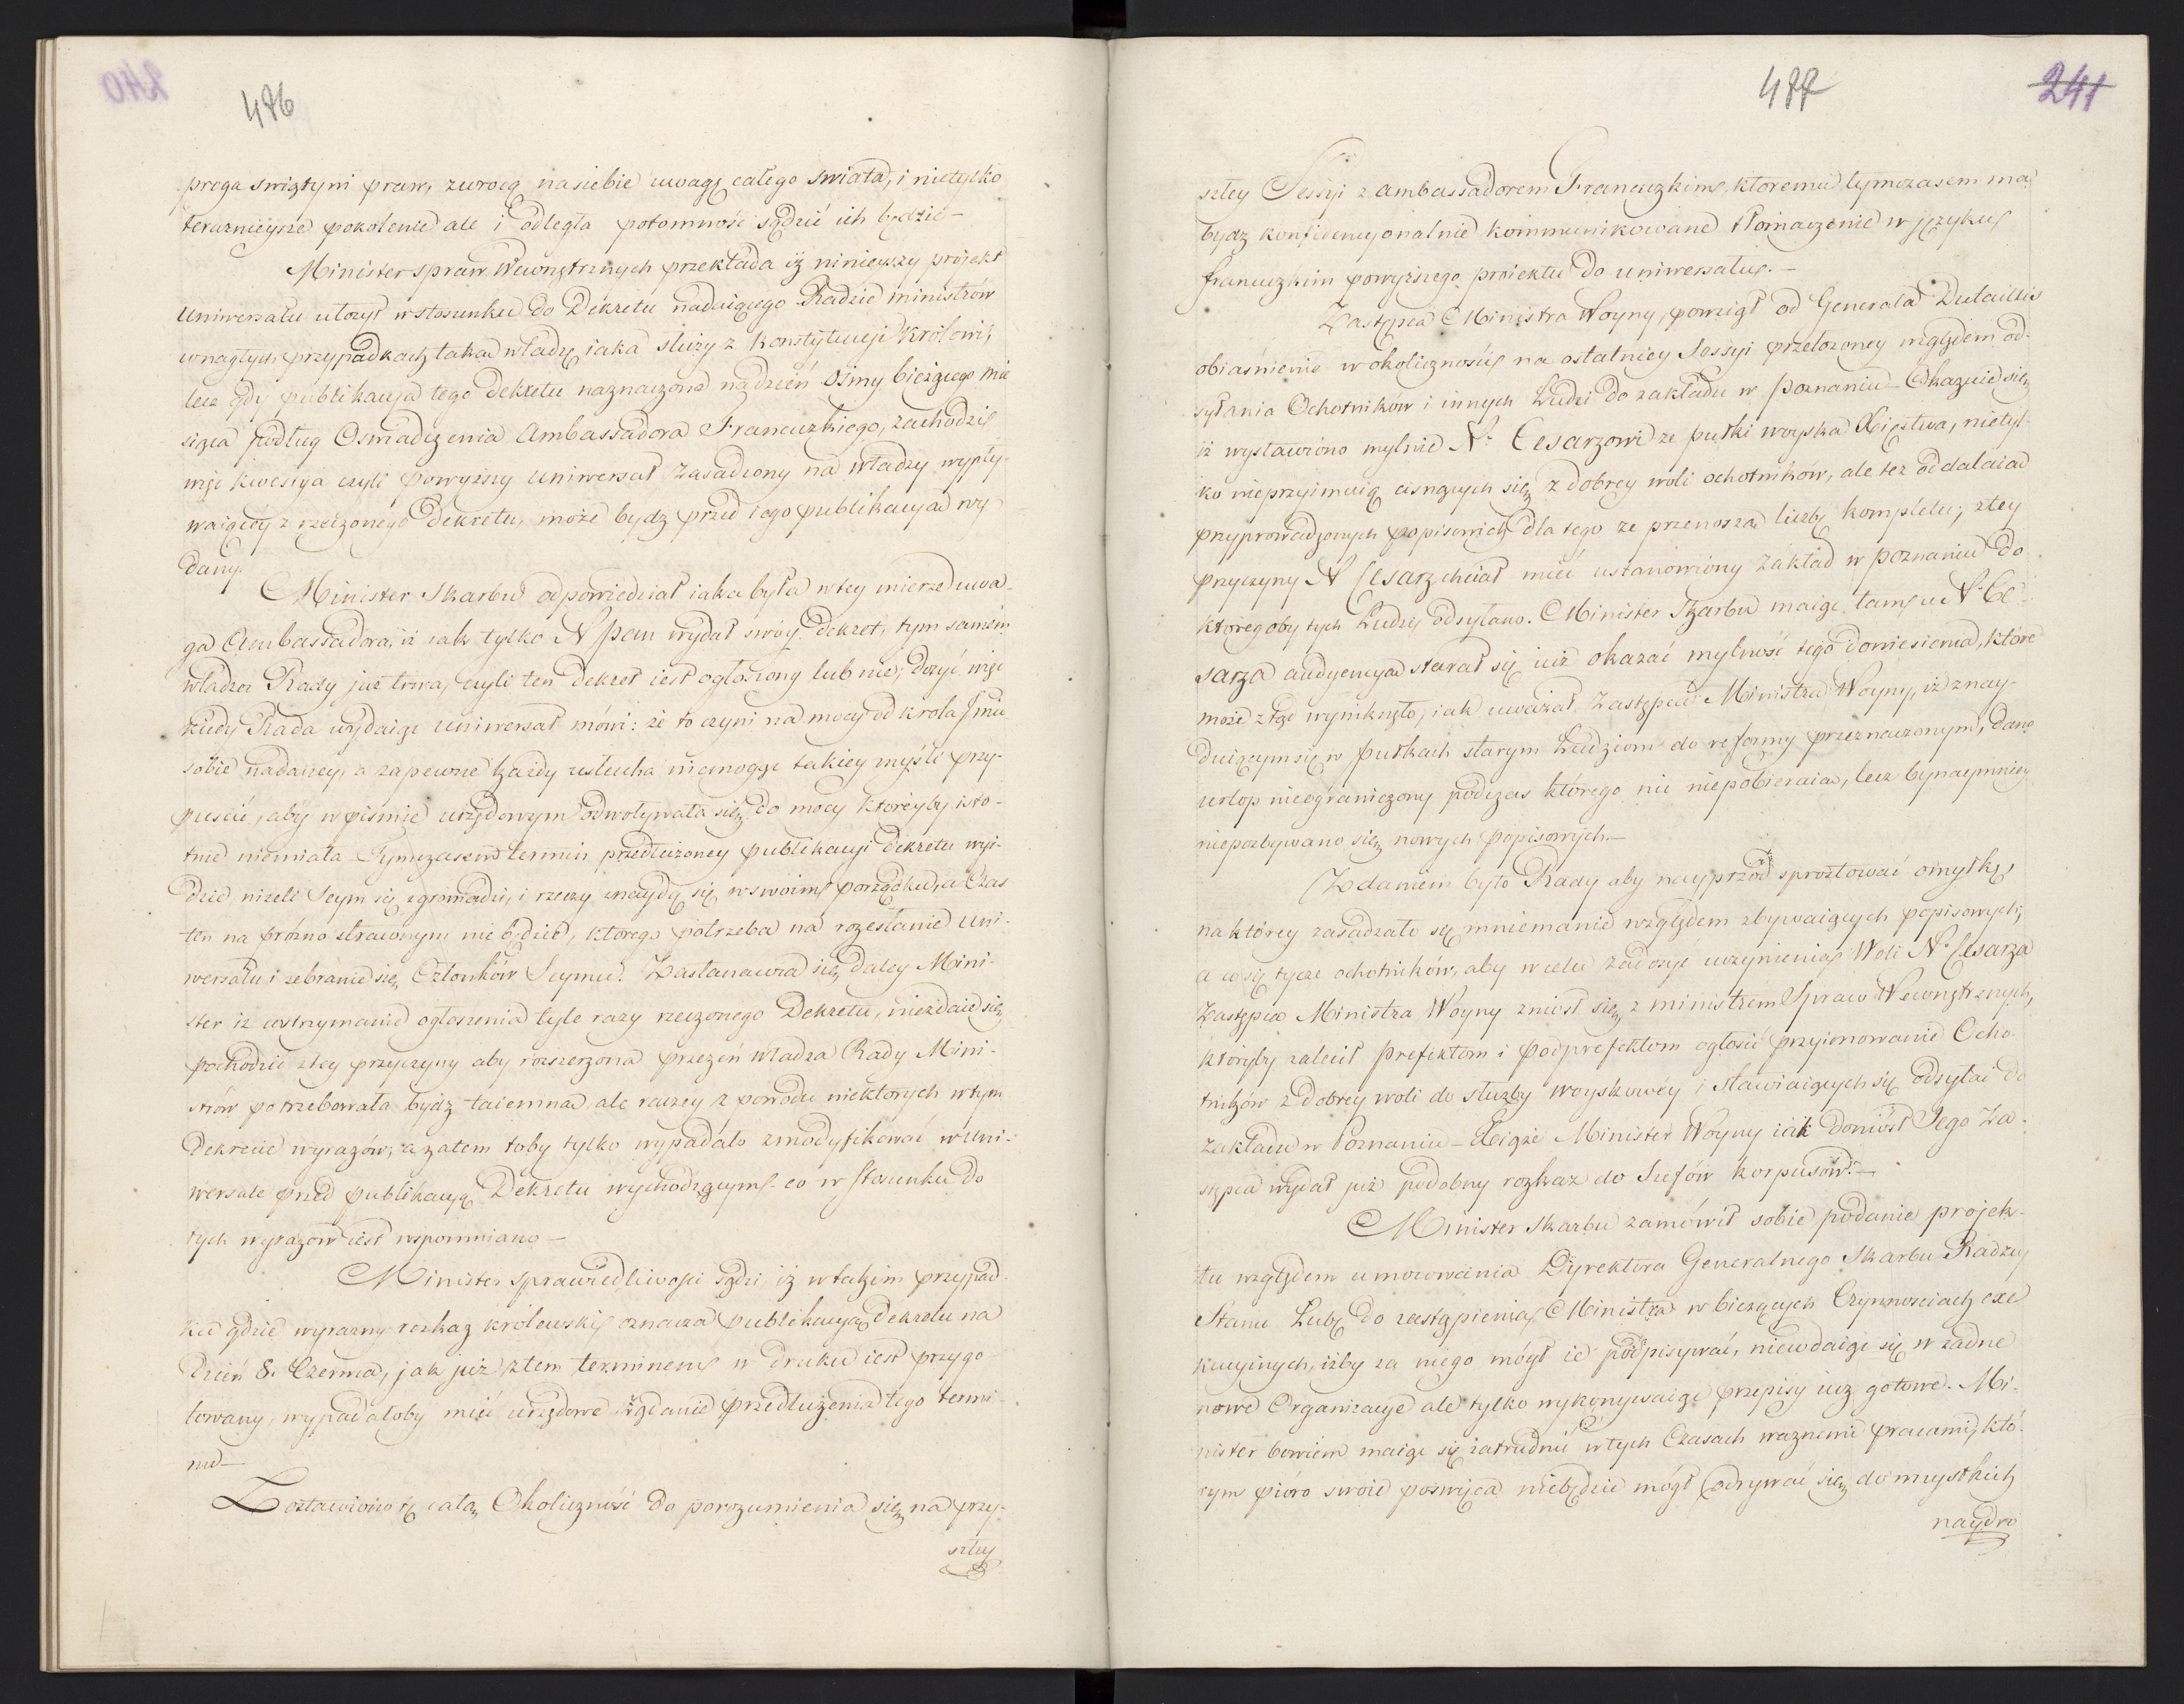 240
476
proga swiątyni praw, zwrocą na siebie uwagę całego swiata, i nietylko
teraznieysze pokolenie ale i odległa potomność sądzić ich będzie —
Minister spraw Wewnętrznych przekłada iż ninieyszy projekt
Uniwersału ułożył w stosunku do Dekretu nadaiącego Radzie ministrów
w nagłych przypadkach taką władzę iaka służy z Konstytucyi Krolowi,
lecz gdy publikacya tego Dekretu naznaczona na dzień Osmy bieżącego mie
siąca podług Oswiadczenia Ambassadora Francuzkiego, zachodzi
więc kwestya czyli powyższy Uniwersał zasadzony na władzy wypły-
waiącey z rzeczonego Dekretu, może bydz przed iego publikacyą wy
dany.
Minister Skarbu odpowiedział iaka była w tey mierze uwa-
ga Ambassadora, iż iak tylko N Pan wydał swóy Dekret, tym samem
władza Rady już trwa, czyli ten Dekret iest ogłoszony lub nie; dosyć więc
kiedy Rada wydaiąc Uniwersał mówi: że to czyni na mocy od Krola Jmci
sobie nadaney, a zapewne każdy usłucha niemogąc takiey myśli przy-
puścić, aby w piśmie urzędowym odwoływała się do mocy ktoreyby isto-
tnie niemiała. Tymczasem termin przedłużoney publikacyi Dekretu wyi-
dzie nizeli Seym się zgromadzi, i rzeczy znaydą się w swoim porządku, a Czas
ten na prózno strawionym nie będzie, ktorego potrzeba na rozesłanie Uni-
wersału i zebranie się Członków Seymu. Zastanawia się daley Mini-
ster iż wstrzymanie ogłoszenia tyle razy rzeczonego Dekretu, niezdaie się
pochodzić z tey przyczyny aby rozszerzona przezeń władza Rady Mini-
strów potrzebowała bydz taiemna, ale raczey z powodu niektorych w tym
Dekrecie wyrazów; a zatem toby tylko wypadało zmodyfikować w Uni-
wersale przed publikacyą Dekretu wychodzącym co w Stosunku do
tych wyrazow iest wspomniano —
Minister Sprawiedliwości sądzi, iż w takim przypad-
ku gdzie wyrazny rozkaz królewski oznacza publikacyą Dekretu na
Dzień 8. Czerwca, jak już z tem terminem w druku iest przygo-
towany, wypadałoby mieć urzędowe żądanie przedłużenia tego termi-
nu —
Zostawiono tę całą Okoliczność do porozumienia się na przy-
szłey
477
241
szłey Sessyi z Ambassadorem Francuzkim, ktoremu tymczasem ma
bydz konfidencyonalnie kommunikowane tłomaczenie w języku
francuzkim powyższego proiektu do uniwersału. —
Zastępca Ministra Woyny, powziął od Generała Dutaillis
obiaśnienie w okoliczności na ostatniey Sessyi przełożoney względem od-
syłania Ochotników i innych Ludzi do zakładu w Poznaniu — Okazuie się
iż wystawiono mylnie N. Cesarzowi że pułki woyska Xięstwa, nietyl-
ko nieprzyimuią cisnących się z dobrey woli ochotnikow, ale też oddalaią
przyprowadzonych popisowych dla tego że przenoszą liczbę kompletu; z tey
przyczyny N Cesarz chciał mieć ustanowiony Zakład w Poznaniu do
ktoregoby tych Ludzi odsyłano. Minister Skarbu maiąc tam u N. Ce-
sarza audyencyą starał się iuż okazać mylność tego doniesienia, które
może ztąd wyniknęło, iak uważał Zastępca Ministra Woyny, iż znay-
duiącym się w Pułkach starym Ludziom do reformy przeznaczonym, dano
urlop nieograniczony podczas którego nic niepobieraią, lecz bynaymniey
niepozbywano się nowych popisowych. —
Zdaniem było Rady aby nayprzód sprostować omyłkę,
na którey zasadzało się mniemanie względem zbywaiących popisowych;
a co się tycze ochotników, aby w celu zadosyć uczynienia Woli N. Cesarza
Zastępca Ministra Woyny zniosł się z ministrem Spraw Wewnętrznych,
któryby zalecił Prefektom i podprefektom ogłosić przyimowanie Ocho-
tników z dobrey woli do służby woyskowéy i stawiaiących się odsyłać do
Zakładu w Poznaniu — Xiąże Minister Woyny iak doniósł Jego Za-
stępca wydał już podobny rozkaz do Szefów korpusów. —
Minister Skarbu zamówił sobie podanie projek-
tu względem umocowania Dyrektora Generalnego Skarbu Radzcy
Stanu Łuby do zastąpienia Ministra w bieżących Czynnościach exe
kucyinych, iżby za niego mógł ie podpisywać, niewdaiąc się w żadne
nowe Organizacye ale tylko wykonywaiąc przepisy iuż gotowe. Mi-
nister bowiem maiąc się zatrudnić w tych Czasach ważnemi pracami, któ-
rym pióro swoie poswięca niebędzie mógł odrywać się do wszystkich
naydro